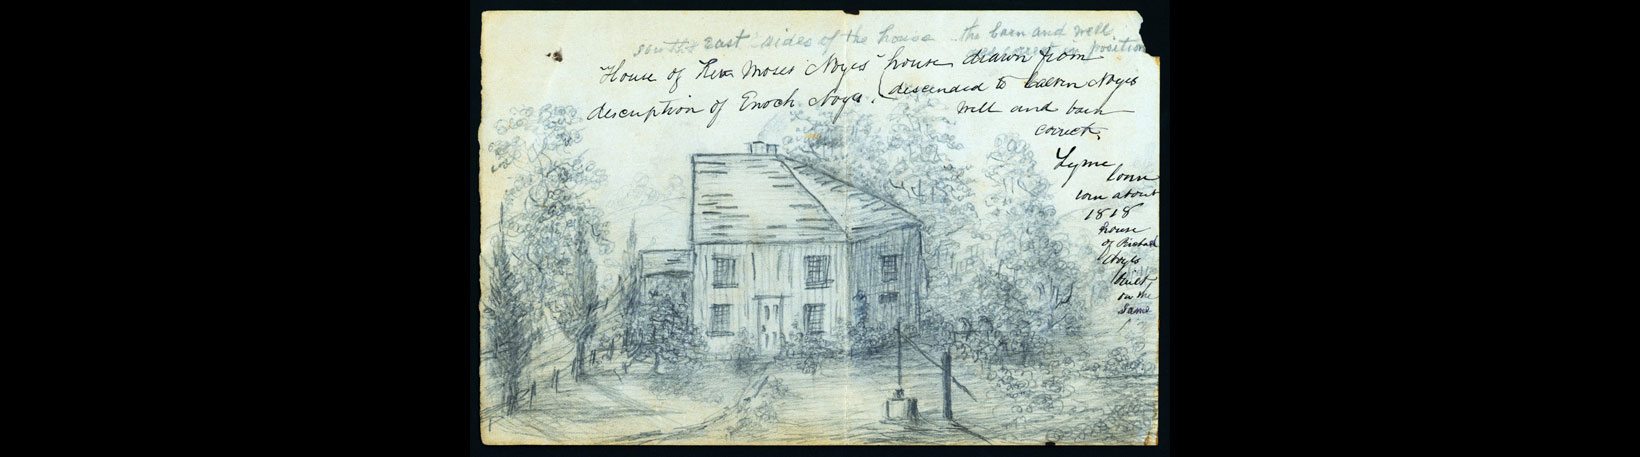 south & east sides of the house the barn and well
are correct in position
House of Rev Moses Noyes house drawn from
description of Enoch Noyes. (descended to Calvin Noyes
well and barn
correct.
Lyme
Conn
torn about
1818
house
of Richard
Noyes
built
on the
same